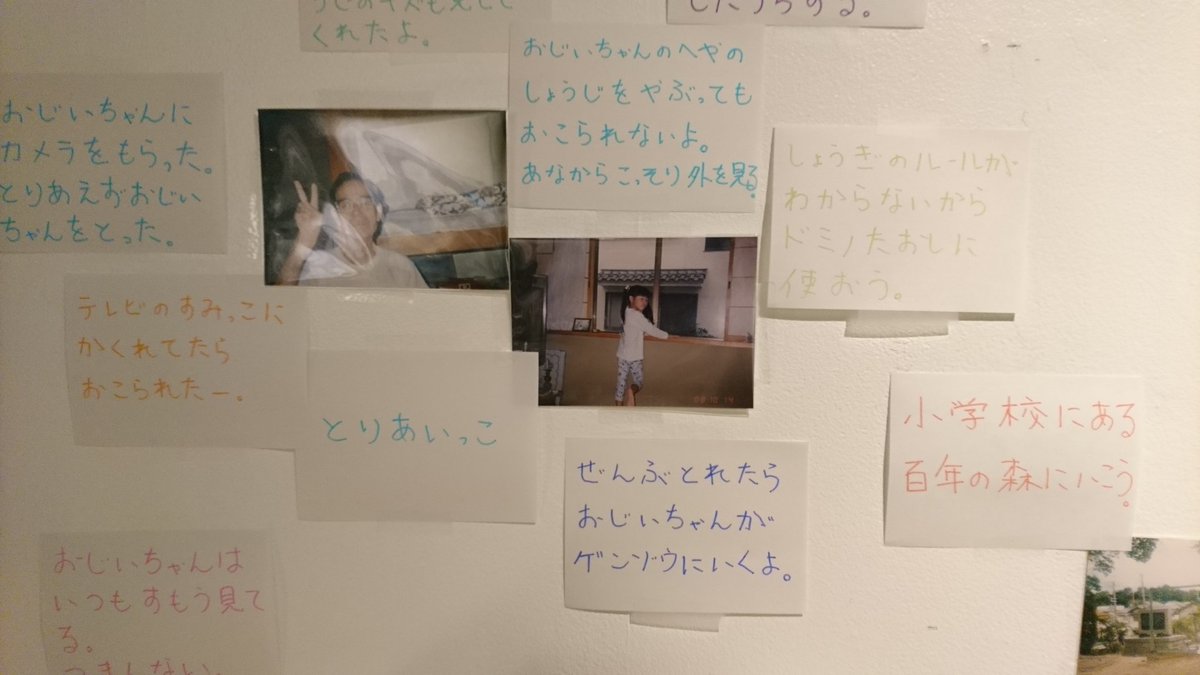 くれたよ。
おじいちゃんのへやの
しょうじをやぶっても
おこられないよ。
あなからこっそり外を見る。
おじいちゃんに
カメラをもらった。
とりあえずおじい
ちゃんをとった。
しょうぎのルールが
わからないから
ドミノたおしに
使おう。
テレビのすみっこに
かくれてたら
おこられたー。
とりあいっこ
小学校にある
百年の森にいこう。
ぜんぶとれたら
おじいちゃんが
ゲンゾウにいくよ。
おじいちゃんは
いつもすもう見て
る。